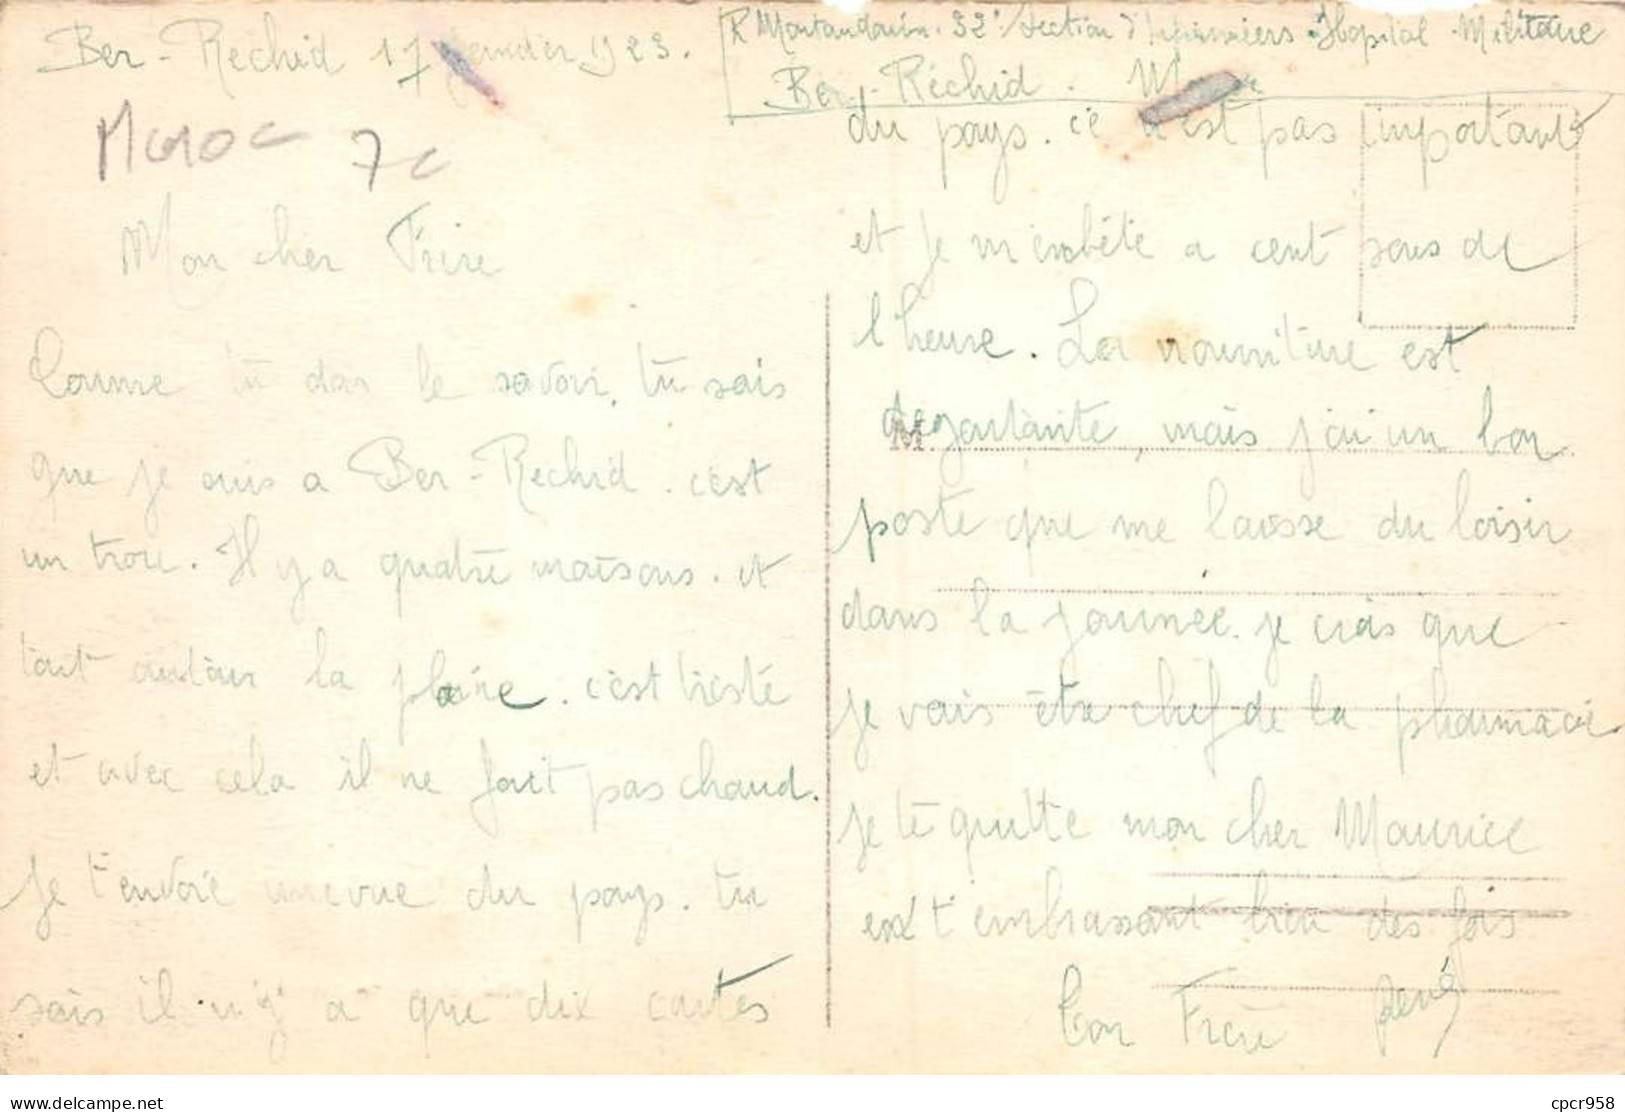 Ber-Rechid 17 janvier 1923.
R Montaudouin. 32e section d'Infirmiers. Hopital Militaire
Ber-Réchid. Maroc
Maroc 7c
Mon cher Frère
Comme tu dois le savoir, tu sais
que je suis a Ber-Rechid. c'est
un trou. Il y a quatre maisons. et
tout autour la plaine. c'est triste
et avec cela il ne fait pas chaud.
je t'envoie une vue du pays. tu
sais il n'y a que dix cartes
du pays. ce n'est pas important
et je m'embête a cent sous de
l'heure. La nourriture est
degoutante, mais j'ai un bon
poste que me laisse du loisir
dans la journée. je crois que
je vais être chef de la pharmacie
je te quitte mon cher Maurice
en t'embrassant bien des fois
Ton Frère René
M.
Delcampe.net
cpcr958